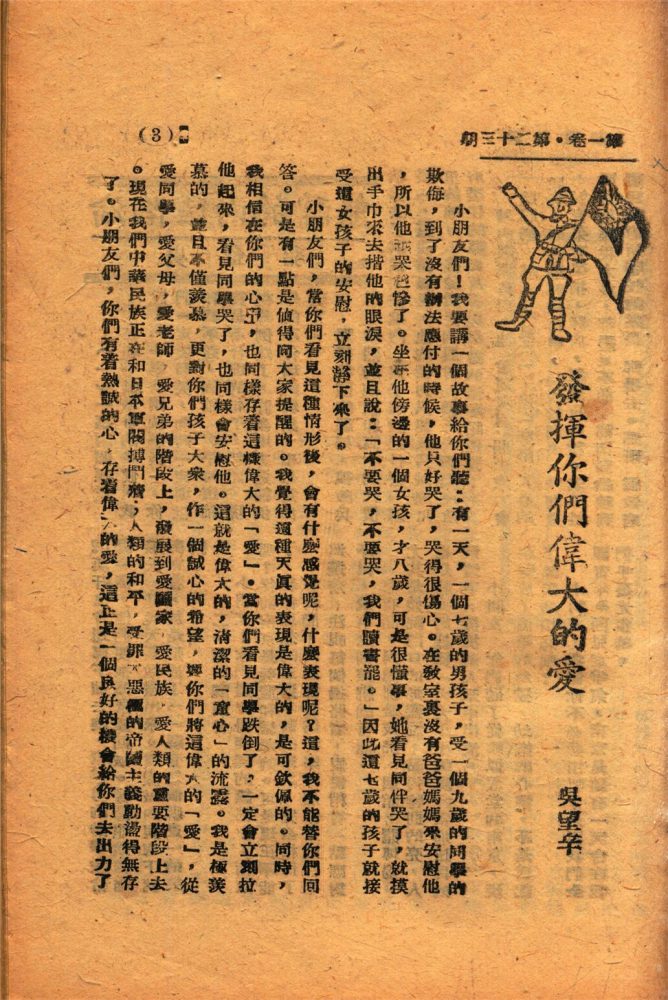 第一卷・第二十三期
(3)
發揮你們偉大的愛
吳望辛
小朋友們!我要講一個故事給你們聽:有一天,一個七歲的男孩子,受一個九歲的同學的
欺侮,到了沒有辦法應付的時候,他只好哭了,哭得很傷心。在教室裏沒有爸爸媽媽來安慰他
,所以他哭慘了。坐在他傍邊的一個女孩,才八歲,可是很懂事,她看見同伴哭了,就摸
出手巾來去揩他的眼淚,並且說:「不要哭,不要哭,我們讀書罷。」因此這七歲的孩子就接
受這女孩子的安慰,立刻靜下來了。
小朋友們,當你們看見這種情形後,會有什麼感覺呢,什麼表現呢?這,我不能替你們回
答。可是有一點是值得向大家提醒的。我覺得這種天真的表現是偉大的,是可欽佩的。同時,
我相信在你們的心里,也同樣存着這樣偉大的「愛」。當你們看見同學跌倒了,一定會立刻拉
他起來,看見同學哭了,也同樣會安慰他。這就是偉大的,清潔的「童心」的流露。我是極羨
慕的,並且不僅羨慕,更對你們孩子大衆,作一個誠心的希望,望你們將這偉大的「愛」,從
愛同學,愛父母,愛老師,愛兄弟的階段上,發展到愛國家,愛民族,愛人類的重要階段上去
。現在我們中華民族正在和日本軍閥搏鬥着,人類的和平,受罪惡的帝國主義動盪得無存
了。小朋友們,你們有着熱誠的心,存着偉大的愛,這正是一個良好的機會給你們去出力了